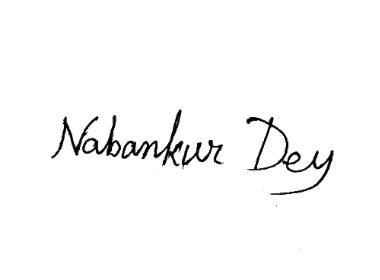 Nabankur Dey